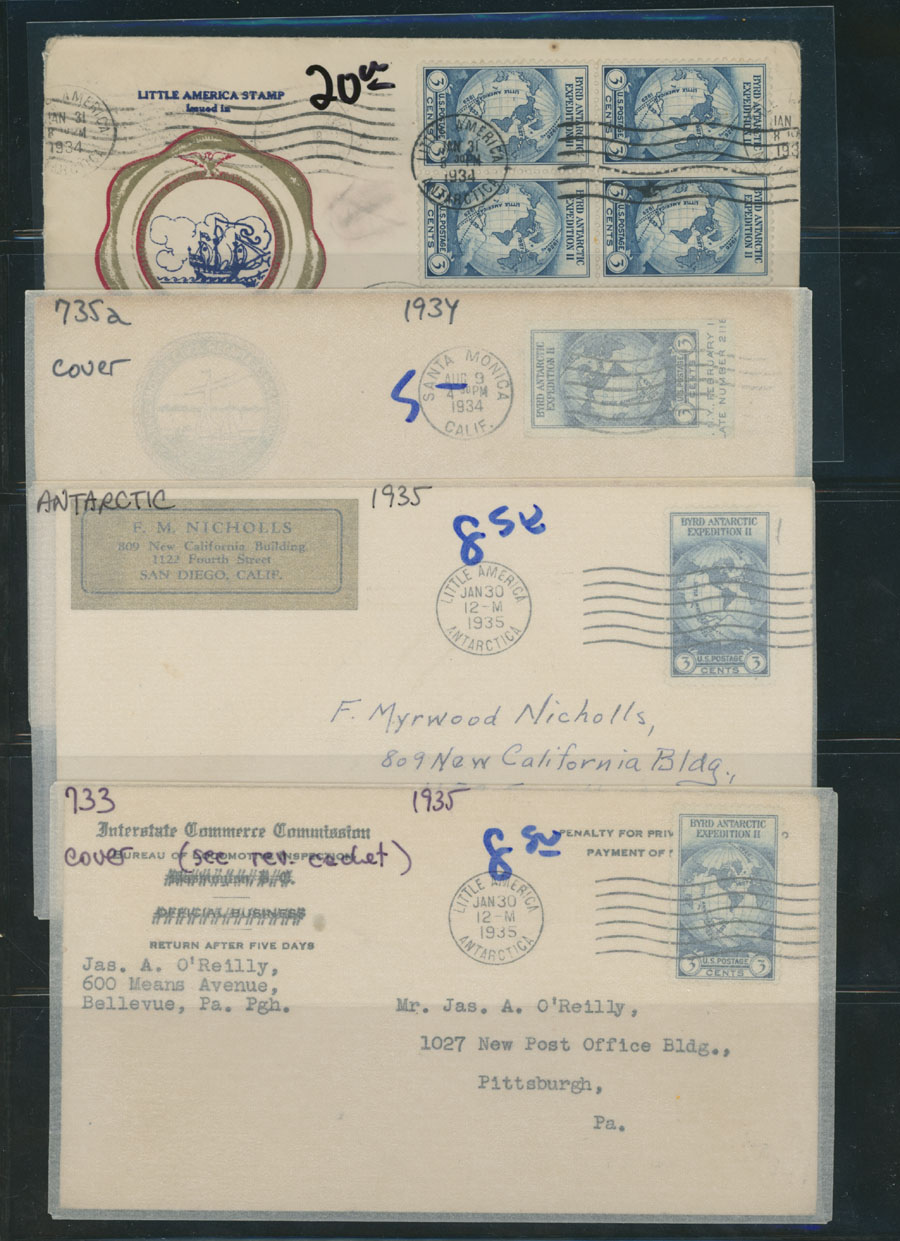 LITTLE AMERICA STAMP
Issued in
20
AMERICA
JAN 31
1934
LITTLE AMERICA
JAN 31
PM
1934
ANTARCTICA
JAN
BYRD ANTARCTIC
EXPEDITION II
3
U.S. POSTAGE
CENTS
BYRD ANTARCTIC
EXPEDITION II
3
U.S. POSTAGE
CENTS
BYRD ANTARCTIC
EXPEDITION II
3
U.S. POSTAGE
CENTS
BYRD ANTARCTIC
EXPEDITION II
3
U.S. POSTAGE
CENTS
735a
1934
cover
5-
SANTA MONICA
AUG 9
4 30 PM
1934
CALIF.
BYRD ANTARCTIC
EXPEDITION II
3
U.S. POSTAGE
CENTS
FEBRUARY 1
ATE NUMBER 2118
ANTARCTIC
1935
8 50
F. M. NICHOLLS
809 New California Building
1122 Fourth Street
SAN DIEGO, CALIF.
LITTLE AMERICA
JAN 30
12-M
1935
ANTARCTICA
BYRD ANTARCTIC
EXPEDITION II
3 U.S. POSTAGE 3
CENTS
F. Myrwood Nicholls,
809 New California Bldg.,
733
1935
8 50
Interstate Commerce Commission
BUREAU OF LOCOMOTIVE INSPECTION
cover (see rev. cachet)
Washington, D.C.
OFFICIAL BUSINESS
RETURN AFTER FIVE DAYS
PENALTY FOR PRIV
PAYMENT OF
LITTLE AMERICA
JAN 30
12-M
1935
ANTARCTICA
BYRD ANTARCTIC
EXPEDITION II
3 U.S. POSTAGE 3
CENTS
Jas. A. O'Reilly,
600 Means Avenue,
Bellevue, Pa. Pgh.
Mr. Jas. A. O'Reilly,
1027 New Post Office Bldg.,
Pittsburgh,
Pa.